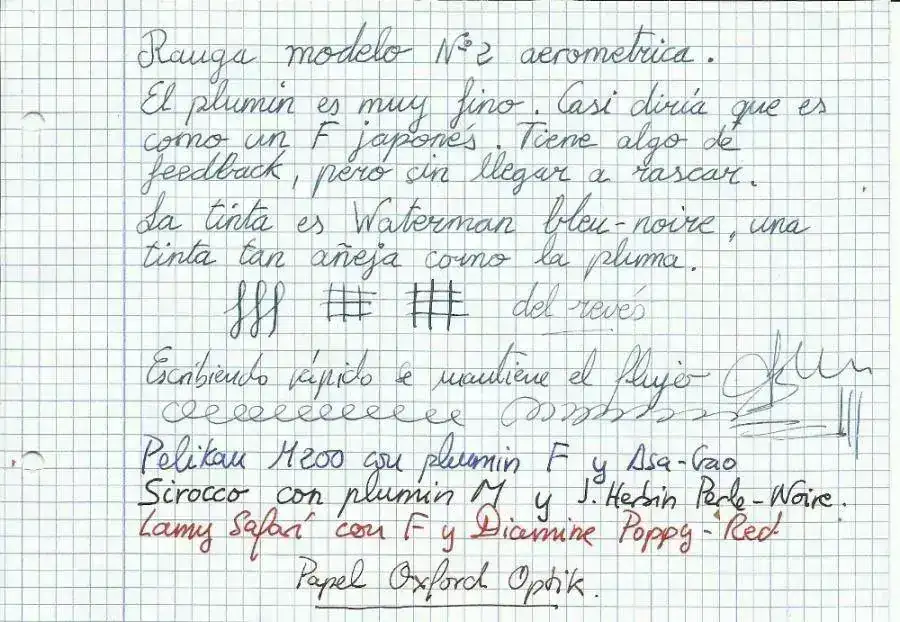 Rauga modelo Nº2 aerometrica.
El plumin es muy fino. Casi diría que es
como un F japonés. Tiene algo de
feedback, pero sin llegar a rascar.
La tinta es Waterman bleu-noire, una
tinta tan añeja como la pluma.
fff del revés
Escribiendo rápido se mantiene el flujo
Pelikan M200 con plumin F y Asa-Gao
Sirocco con plumin M y J. Herbin Perle-Noire.
Lamy Safari con F y Diamine Poppy-Red
Papel Oxford Optik.